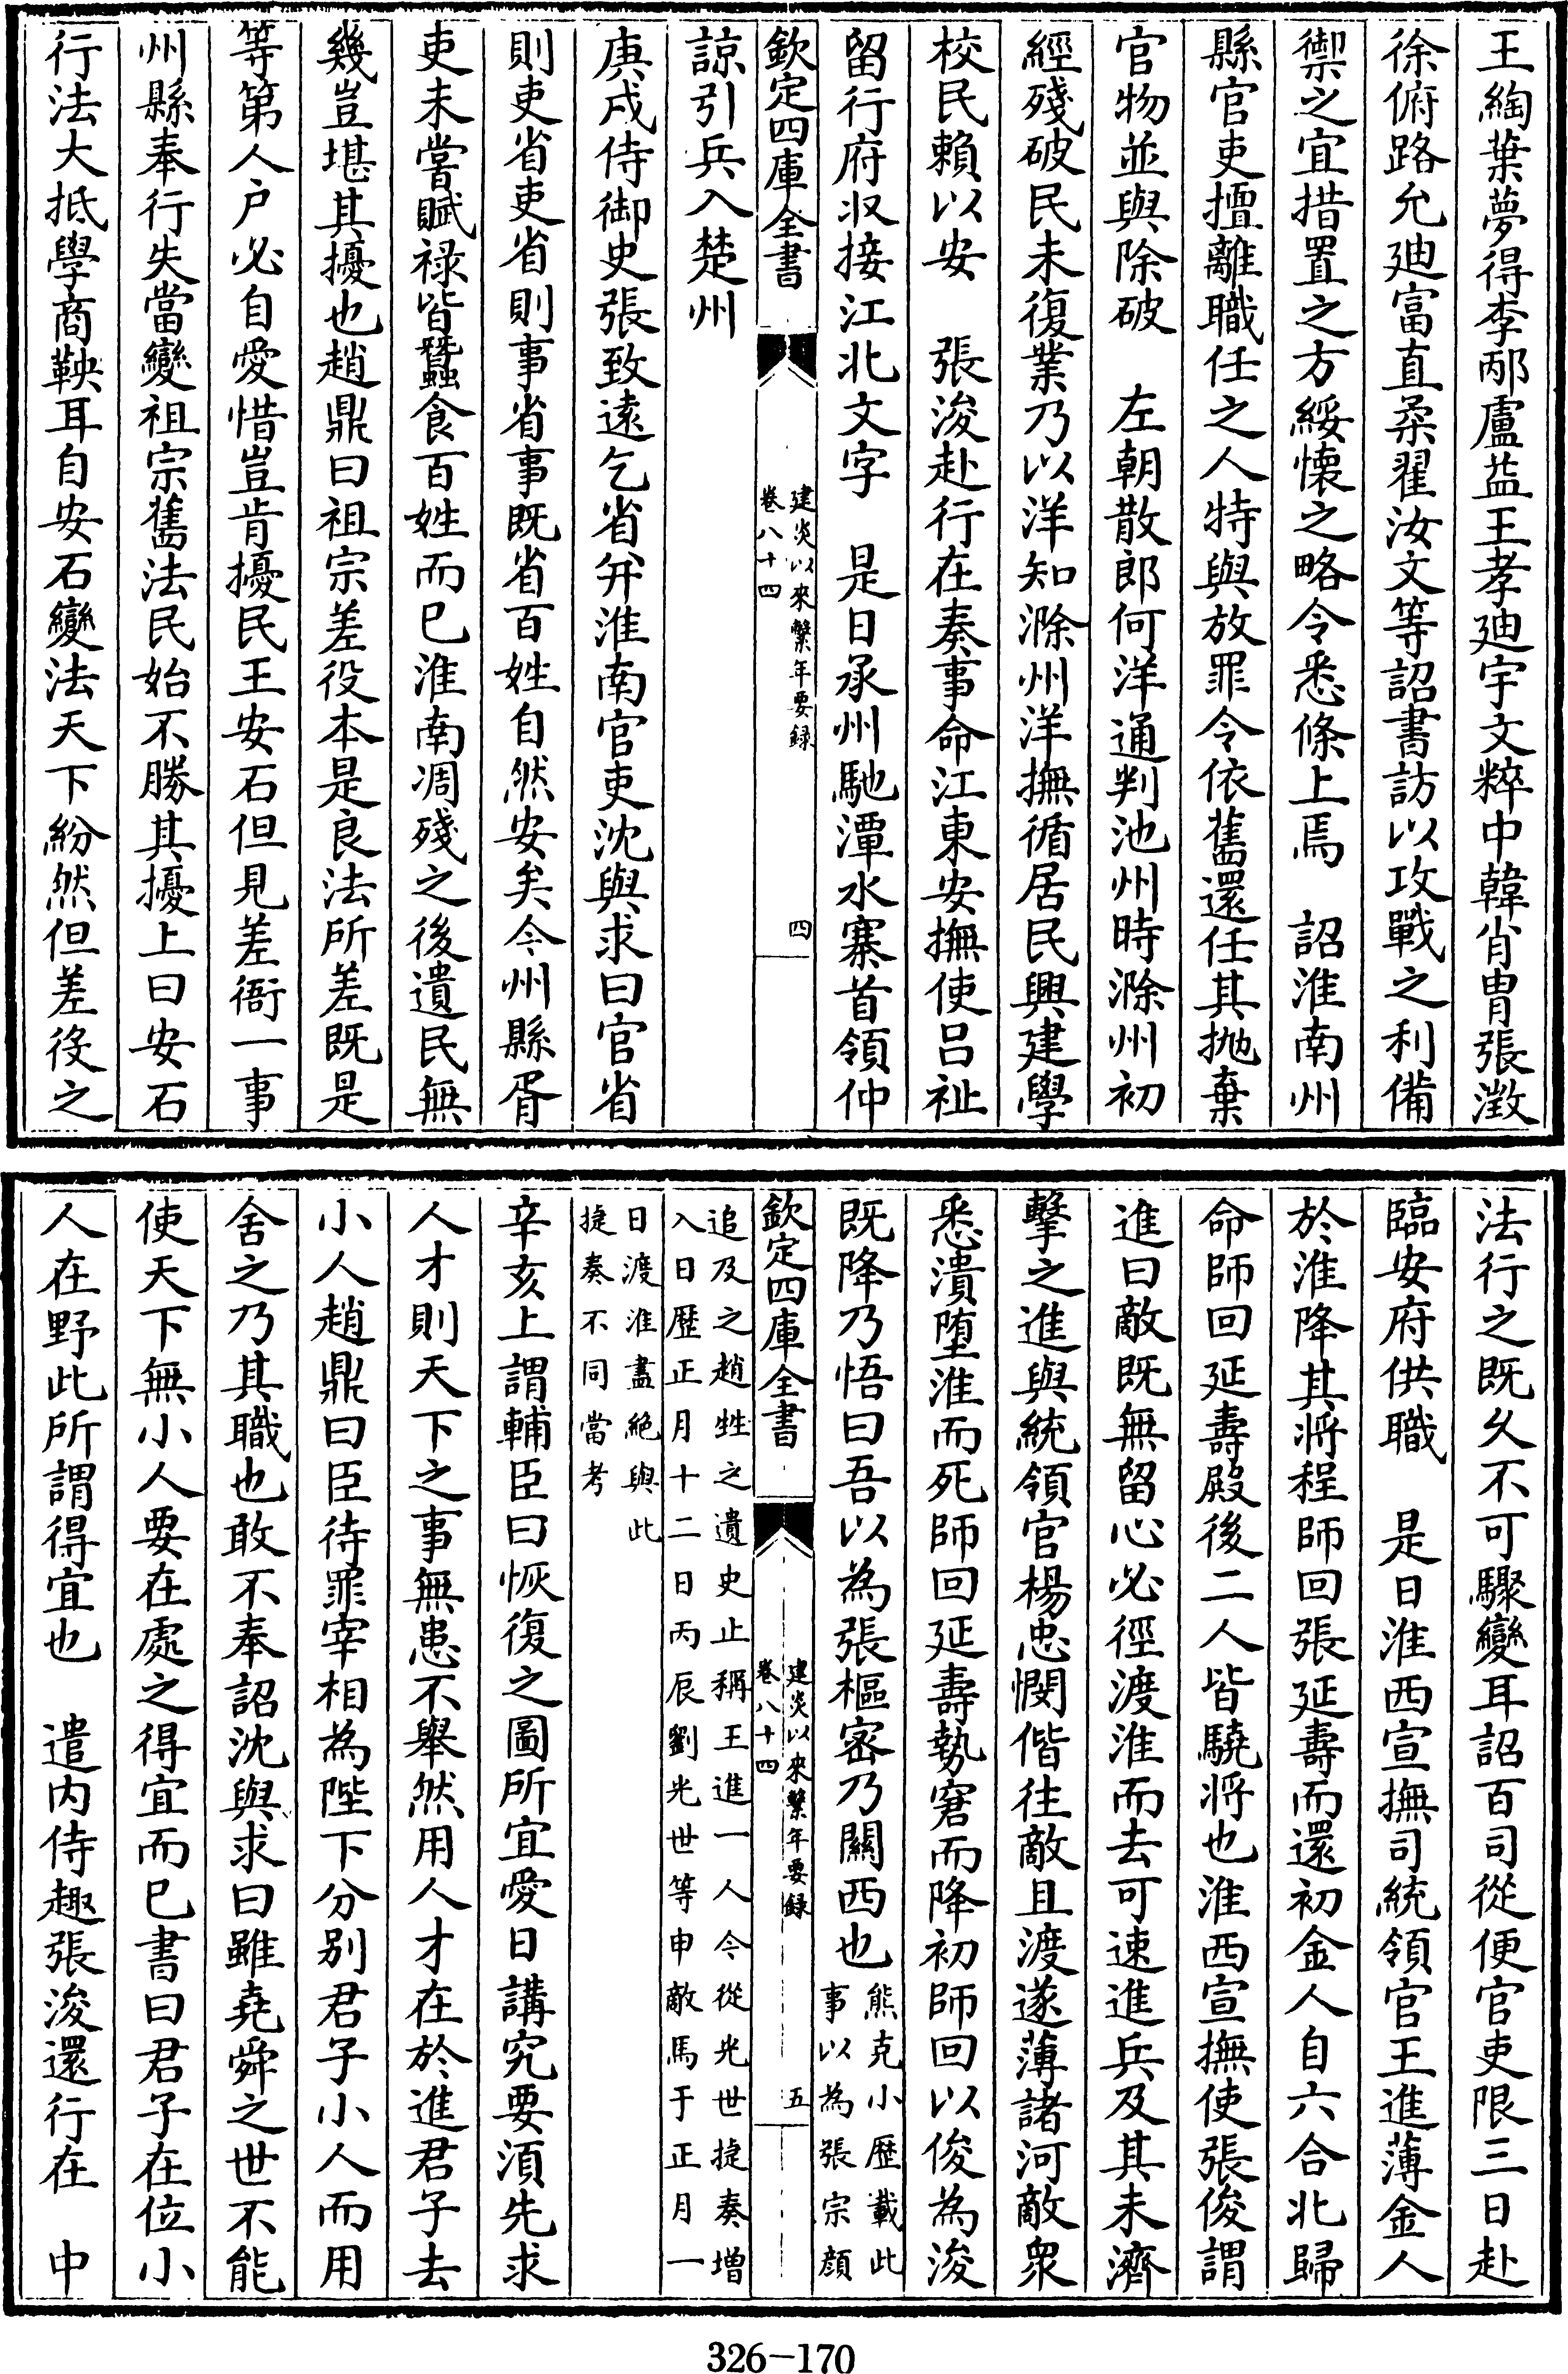 王綯葉夢得李邴盧益王孝廸宇文粹中韓肖胄張澂
徐俯路允廸富直柔翟汝文等詔書訪以攻戰之利備
禦之宜措置之方綏懷之略令悉條上焉　詔淮南州
縣官吏擅離職任之人特與放罪令依舊還任其抛棄
官物並與除破　左朝散郎何洋通判池州時滁州初
經殘破民未復業乃以洋知滁州洋撫循居民興建學
校民賴以安　張浚赴行在奏事命江東安撫使呂祉
留行府収接江北文字　是日承州馳潭水寨首領仲
欽定四庫全書　建炎以來繫年要録　卷八十四　四
諒引兵入楚州
庚戌侍御史張致遠乞省并淮南官吏沈與求曰官省
則吏省吏省則事省事既省百姓自然安矣今州縣胥
吏未嘗賦禄皆蠶食百姓而已淮南凋殘之後遺民無
幾豈堪其擾也趙鼎曰祖宗差役本是良法所差既是
等第人户必自愛惜豈肯擾民王安石但見差衙一事
州縣奉行失當變祖宗舊法民始不勝其擾上曰安石
行法大抵學商鞅耳自安石變法天下紛然但差役之
法行之既久不可驟變耳詔百司從便官吏限三日赴
臨安府供職　是日淮西宣撫司統領官王進薄金人
於淮降其将程師回張延壽而還初金人自六合北歸
命師回延壽殿後二人皆驍将也淮西宣撫使張俊謂
進曰敵既無留心必徑渡淮而去可速進兵及其未濟
擊之進與統領官楊忠憫偕往敵且渡遂薄諸河敵衆
悉潰堕淮而死師回延壽勢窘而降初師回以俊為浚
既降乃悟曰吾以為張樞密乃關西也熊克小歴載此
事以為張宗顔
欽定四庫全書　建炎以來繫年要録　卷八十四　五
追及之趙甡之遺史止稱王進一人今從光世捷奏増
入日歴正月十二日丙辰劉光世等申敵馬于正月一
日渡淮盡絶與此
捷奏不同當考
辛亥上謂輔臣曰恢復之圖所宜愛日講究要湏先求
人才則天下之事無患不舉然用人才在於進君子去
小人趙鼎曰臣待罪宰相為陛下分别君子小人而用
舍之乃其職也敢不奉詔沈與求曰雖堯舜之世不能
使天下無小人要在處之得宜而已書曰君子在位小
人在野此所謂得宜也　遣内侍趣張浚還行在　中
326-170